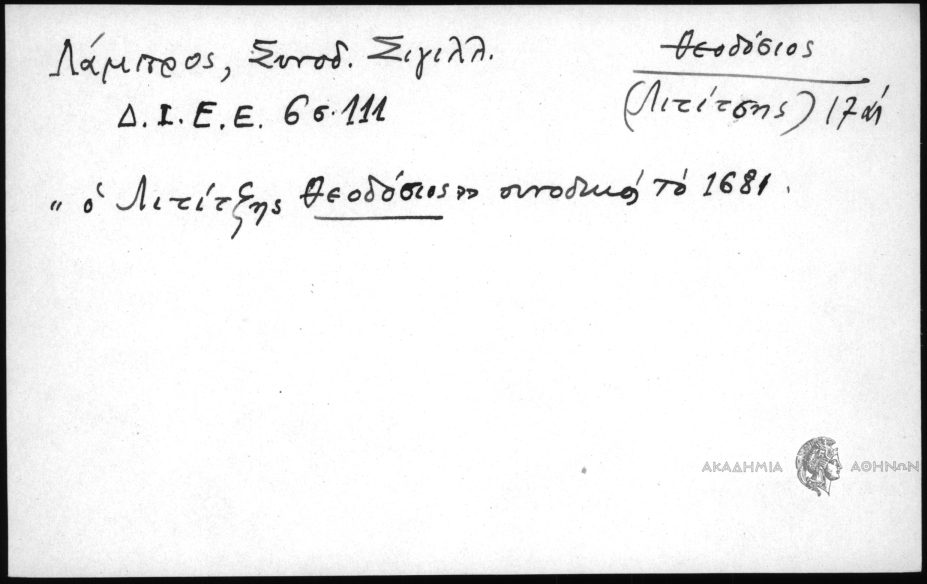 Λάμπρος, Συνοδ. Σιγιλλ.
Δ. Ι. Ε. Ε. 6 σ. 111
Θεοδόσιος
(Λιτίτσης) 17 αἰ
" ὁ Λιτίτζης Θεοδόσιος» συνοδικό, τὸ 1681.
ΑΚΑΔΗΜΙΑ ΑΘΗΝΩΝ